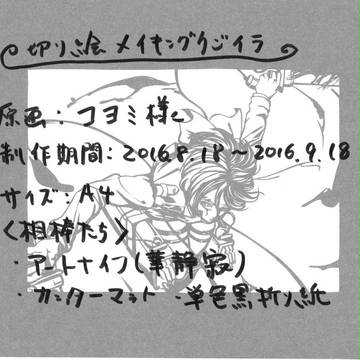 切り絵 メイキングクジイラ
原画：コヨミ様
制作期間：2016.8.18〜2016.9.18
サイズ：A4
〈相棒たち〉
・アートナイフ(華静寂)
・カッターマット ・単色黒折り紙